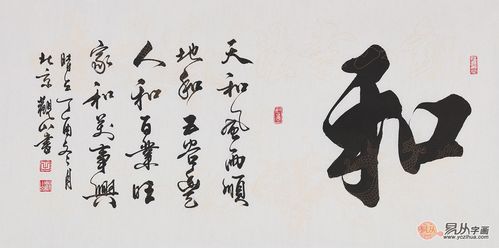 和
天和風雨順
地和五谷豐
人和百業旺
家和萬事興
時在丁酉冬月
北京觀山書
易从字画
www.yczihua.com